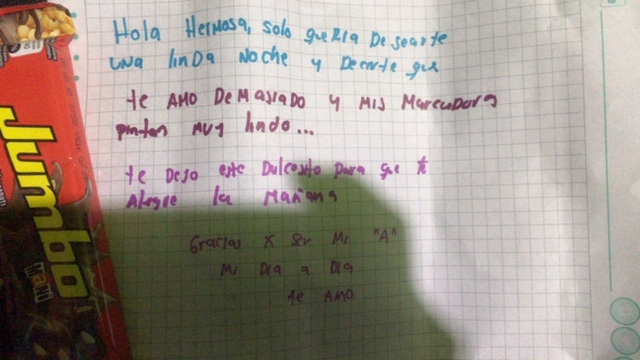 Jumbo
Mani
Hola Hermosa, solo queria Desearte
una linda Noche y Decirte que
te AMO DeMasiado y Mis Marcadora
pintan muy lindo...
te Dejo este Dulcesito para que te
Alegre la Mañana
Gracias x ser Mi "A"
Mi Dia a Dia
te AMO